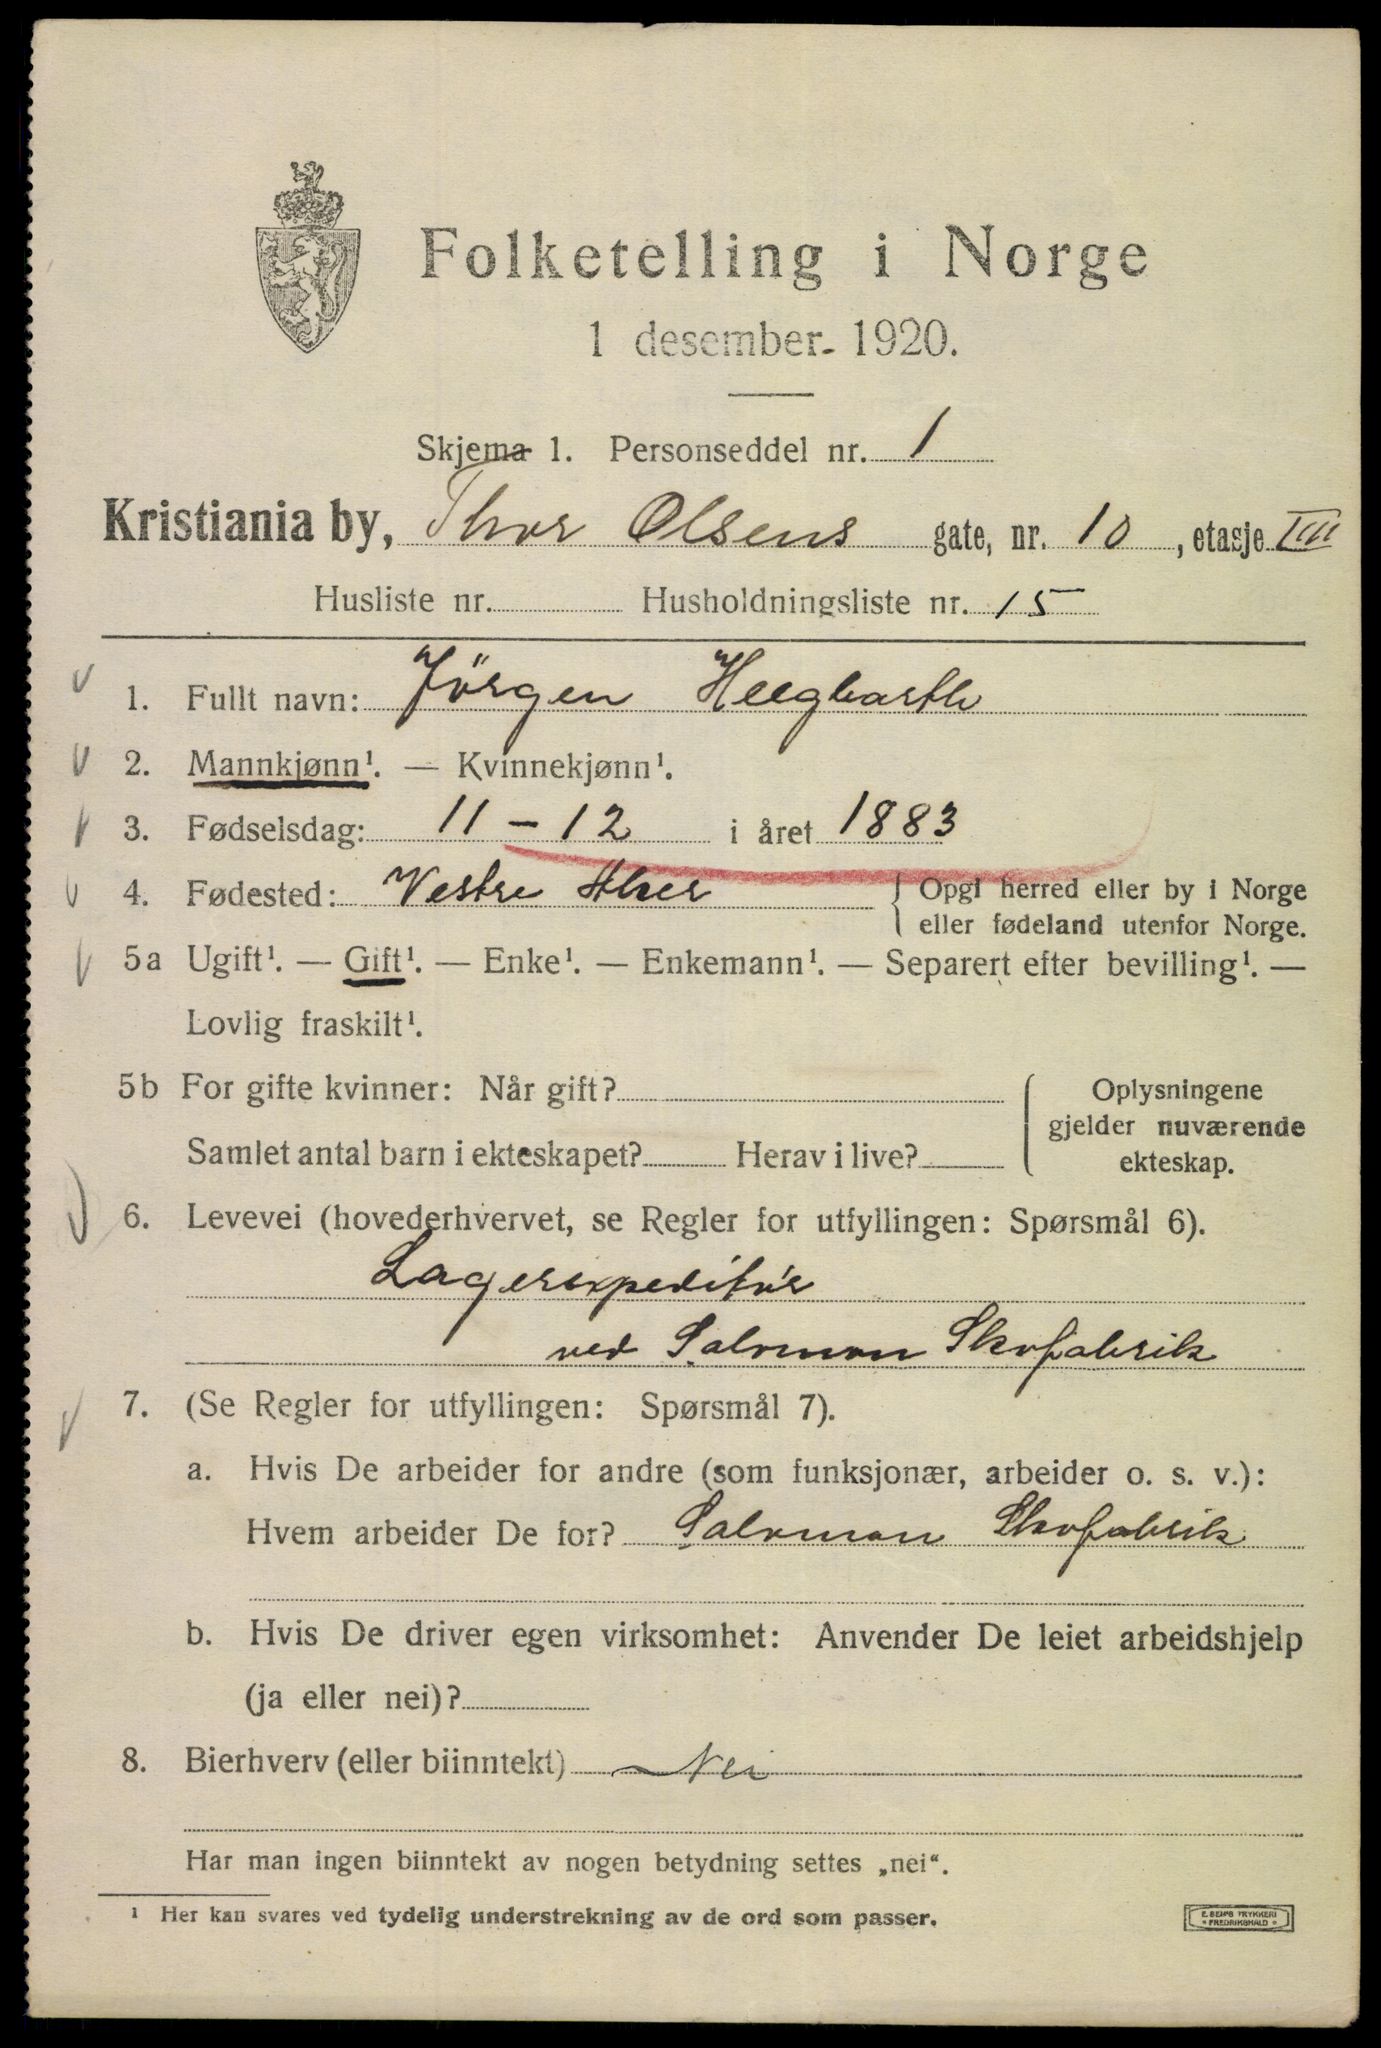 Folketelling i Norge
1 desember 1920.
Skjema 1. Personseddel nr. 1
Kristiania by, Thor Olsens gate, nr. 10, etasje III
Husliste nr. Husholdningsliste nr. 15
1. Fullt navn: Jörgen
2. Mannkjønn¹. — Kvinnekjønn¹.
3. Fødselsdag: 11 - 12 i året 1883
4. Fødested: Vestre Aker { Opgi herred eller by i Norge
eller fødeland utenfor Norge.
5a Ugift¹. — Gift¹. — Enke¹. — Enkemann¹. — Separert efter bevilling¹. —
Lovlig fraskilt¹.
5b For gifte kvinner: Når gift?
Samlet antal barn i ekteskapet? Herav i live?
Oplysningene
gjelder nuværende
ekteskap.
6. Levevei (hovederhvervet, se Regler for utfyllingen: Spørsmål 6).
Lagerexpeditör
ved Salomon Skofabrik
7. (Se Regler for utfyllingen: Spørsmål 7).
a. Hvis De arbeider for andre (som funksjonær, arbeider o. s. v.):
Hvem arbeider De for? Salomon Skofabrik
b. Hvis De driver egen virksomhet: Anvender De leiet arbeidshjelp
(ja eller nei)?
8. Bierhverv (eller biinntekt) Nei
Har man ingen biinntekt av nogen betydning settes „nei“.
¹ Her kan svares ved tydelig understrekning av de ord som passer.
E. SEM'S TRYKKERI
* FREDRIKSHALD *